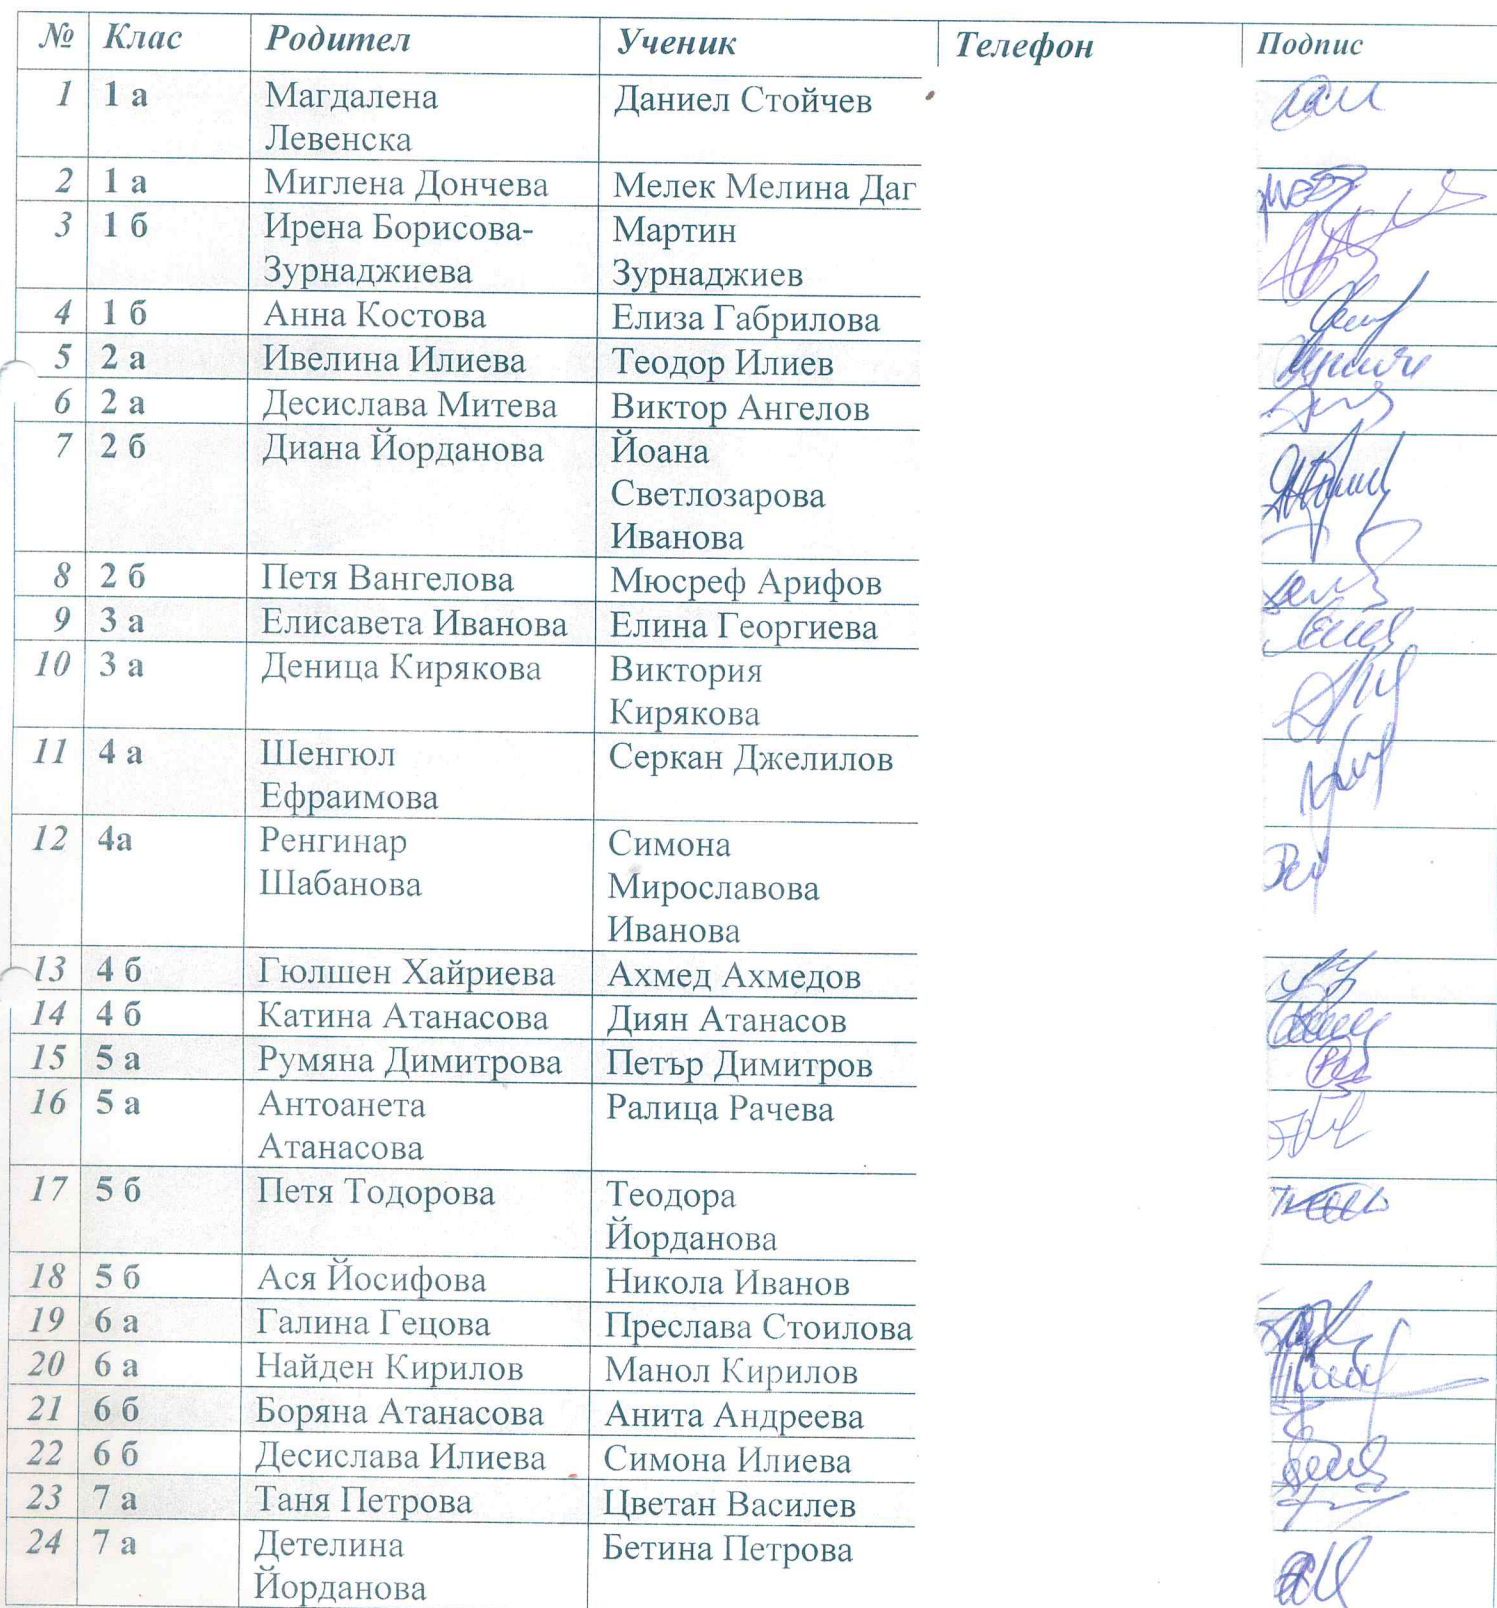 № Клас Родител Ученик Телефон Подпис
1 1 а Магдалена Даниел Стойчев
Левенска
2 1 а Миглена Дончева Мелек Мелина Даг
3 1 б Ирена Борисова- Мартин
Зурнаджиева Зурнаджиев
4 1 б Анна Костова Елиза Габрилова
5 2 а Ивелина Илиева Теодор Илиев
6 2 а Десислава Митева Виктор Ангелов
7 2 б Диана Йорданова Йоана
Светлозарова
Иванова
8 2 б Петя Вангелова Мюсреф Арифов
9 3 а Елисавета Иванова Елина Георгиева
10 3 а Деница Кирякова Виктория
Кирякова
11 4 а Шенгюл Серкан Джелилов
Ефраимова
12 4а Ренгинар Симона
Шабанова Мирославова
Иванова
13 4 б Гюлшен Хайриева Ахмед Ахмедов
14 4 б Катина Атанасова Диян Атанасов
15 5 а Румяна Димитрова Петър Димитров
16 5 а Антоанета Ралица Рачева
Атанасова
17 5 б Петя Тодорова Теодора
Йорданова
18 5 б Ася Йосифова Никола Иванов
19 6 а Галина Гецова Преслава Стоилова
20 6 а Найден Кирилов Манол Кирилов
21 6 б Боряна Атанасова Анита Андреева
22 6 б Десислава Илиева Симона Илиева
23 7 а Таня Петрова Цветан Василев
24 7 а Детелина Бетина Петрова
Йорданова